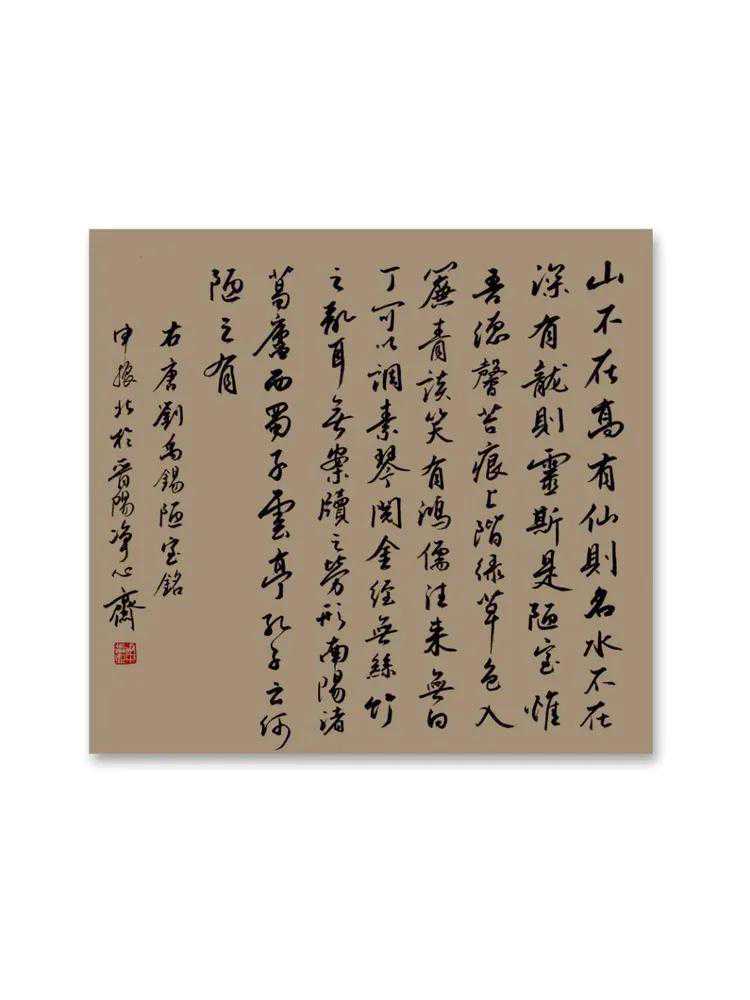 山不在高有仙則名水不在
深有龍則靈斯是陋室惟
吾德馨苔痕上階緑草色入
簾青談笑有鴻儒往來無白
丁可以調素琴閱金經無絲竹
之亂耳無案牘之勞形南陽诸
葛廬西蜀子雲亭孔子云何
陋之有
右唐劉禹錫陋室銘
申振北於晉陽淨心齋